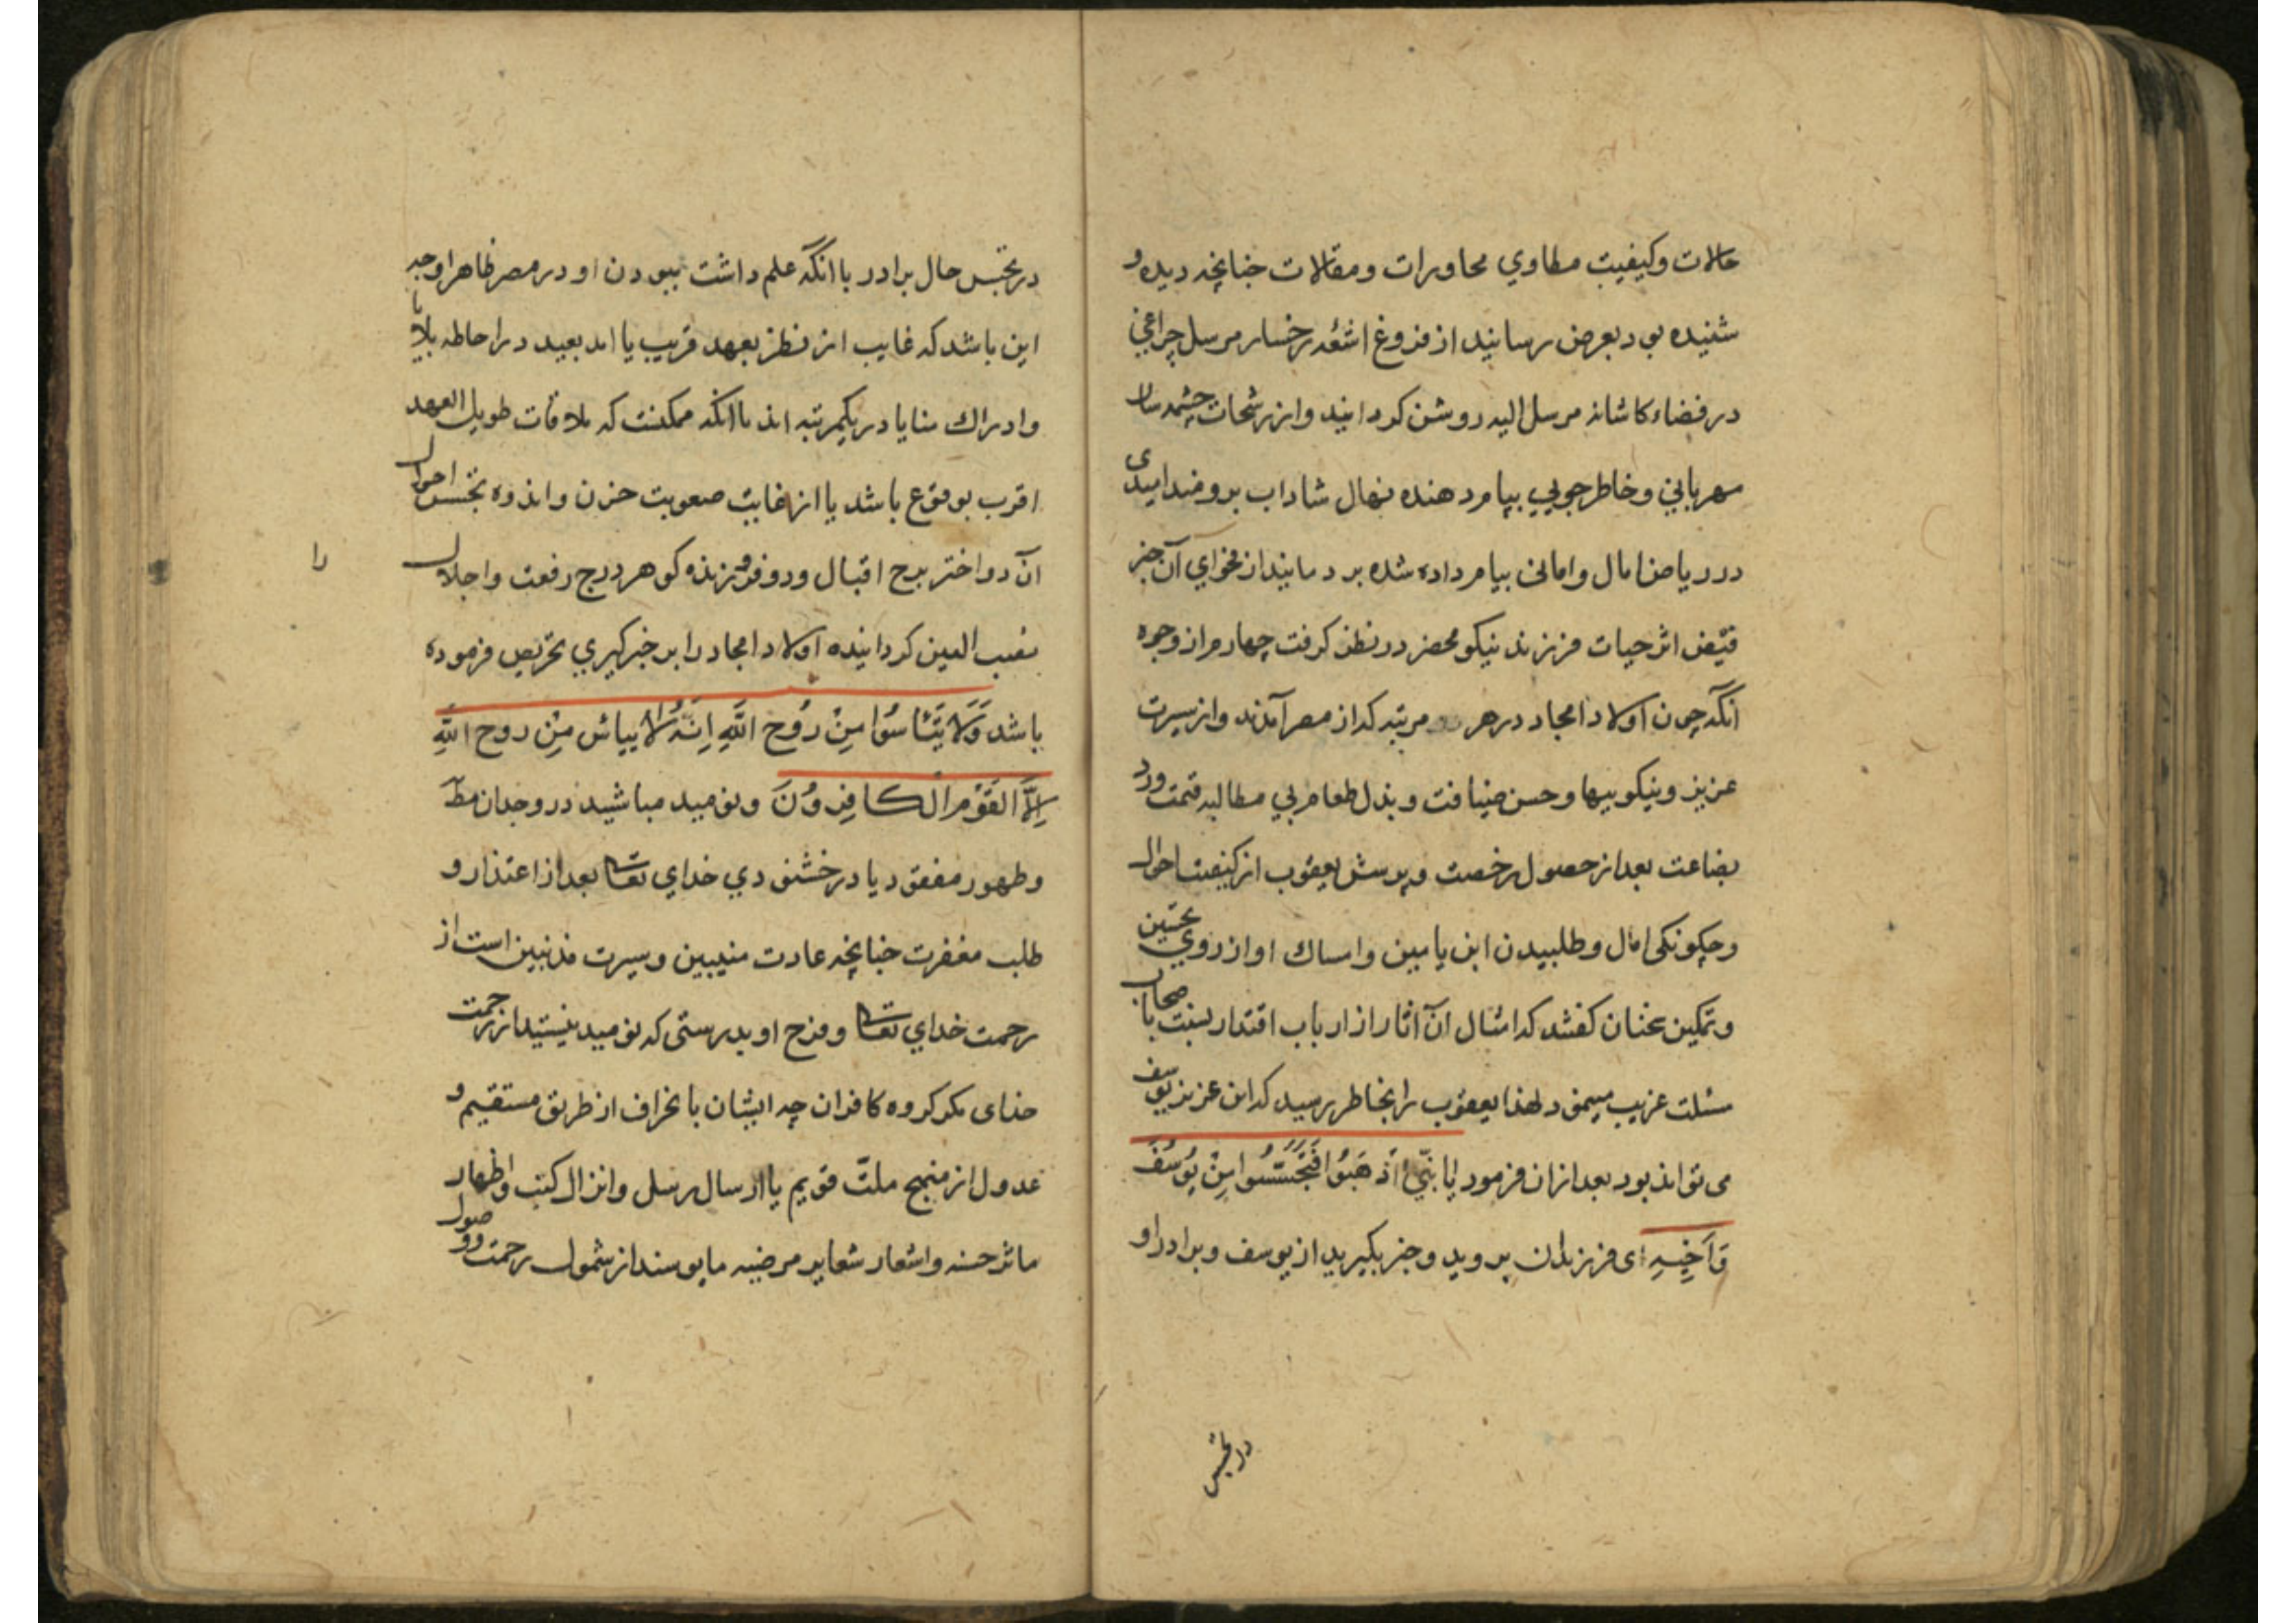 حالات وکیفیت مطاوي محاورات ومقالات چنانچه دیده و
شنیده بود بعرض رسانید از فروغ اشعه رخسار مرسل چراغی
در فضاء کاشانه مرسل الیه روشن کردانید واز رشحات چشمه سار
مهربانی وخاطرجویی پیام دهنده نهال شاداب برومند امیدی
در ریاض امال وامانی پیام داده شده بردمانید از فحوای آن خبر
اثر حیات فرزند نیکو محضر در نظر کرفت چهارم از وجوه
آنکه چون اولاد امجاد در هر دو مرتبه که از مصر آمدند واز سیرت
عزیز ونیکوییها وحسن ضیافت وبذل طعام بی مطالبه قیمت ورد
بضاعت بعد از حصول رخصت وپرسش یعقوب از کیفیت احوال
وچکونکی امال وطلبیدن ابن یامین وامساک او از روی تحسین
وتمکین عثان کفتند که امثال آن آثار از ارباب اقتدار نسبت باصحاب
مسئلت غریب مینمود لهذا یعقوب را بخاطر رسید که این عزیز یوسف
می تواند بود بعد ازان فرمود یا بَنِيَّ اذْهَبُوا فَتَحَسَّسُوا مِنْ يُوسُفَ
وَاَخِيهِ ای فرزندان بروید وخبر بکیرید از یوسف وبرادر او
در تجسس
در تجسس حال برادر با انکه علم داشت ببودن او در مصر ظاهرا وجه
این باشد که غایب از نظر بعهد قریب یا امد بعید در احاطه بلایا
وادراک منایا در یکمرتبه اند با انکه ممکنست که ملاقات طویل العهد
اقرب بوقوع باشد یا از غایت صعوبت حزن واندوه تجسس احوال
آن دو اختر برج اقبال ودو فروزنده کوهر درج رفعت واجلال
را
نصب العین کردانیده اولاد امجاد را بر خبرکیری تحریص فرموده
باشد وَلَا تَيْئَاسُوا مِنْ رَوْحِ اللهِ اِنَّهُ لَا ييأس مِنْ روح اللهِ
اِلَّا القَوْمُ الْكافِرُونَ ونومید مباشید در وجدان مطلب
وظهور مفقود یا در خشنودی خدای تعالی بعد از اعتذار و
طلب مغفرت چنانچه عادت منیبین وسیرت مذنبین است از
رحمت خدای تعالی وفرح او بدرستی که نومید نیستید از رحمت
خدای مکر کروه کافران چه ایشان بانحراف از طریق مستقیم و
عدول از منهج ملت قویم یا ارسال رسل وانزال کتب واظهار
ماثر حسنه واشعار شعایر مرضیه مایوسند از شمول رحمت ووصول